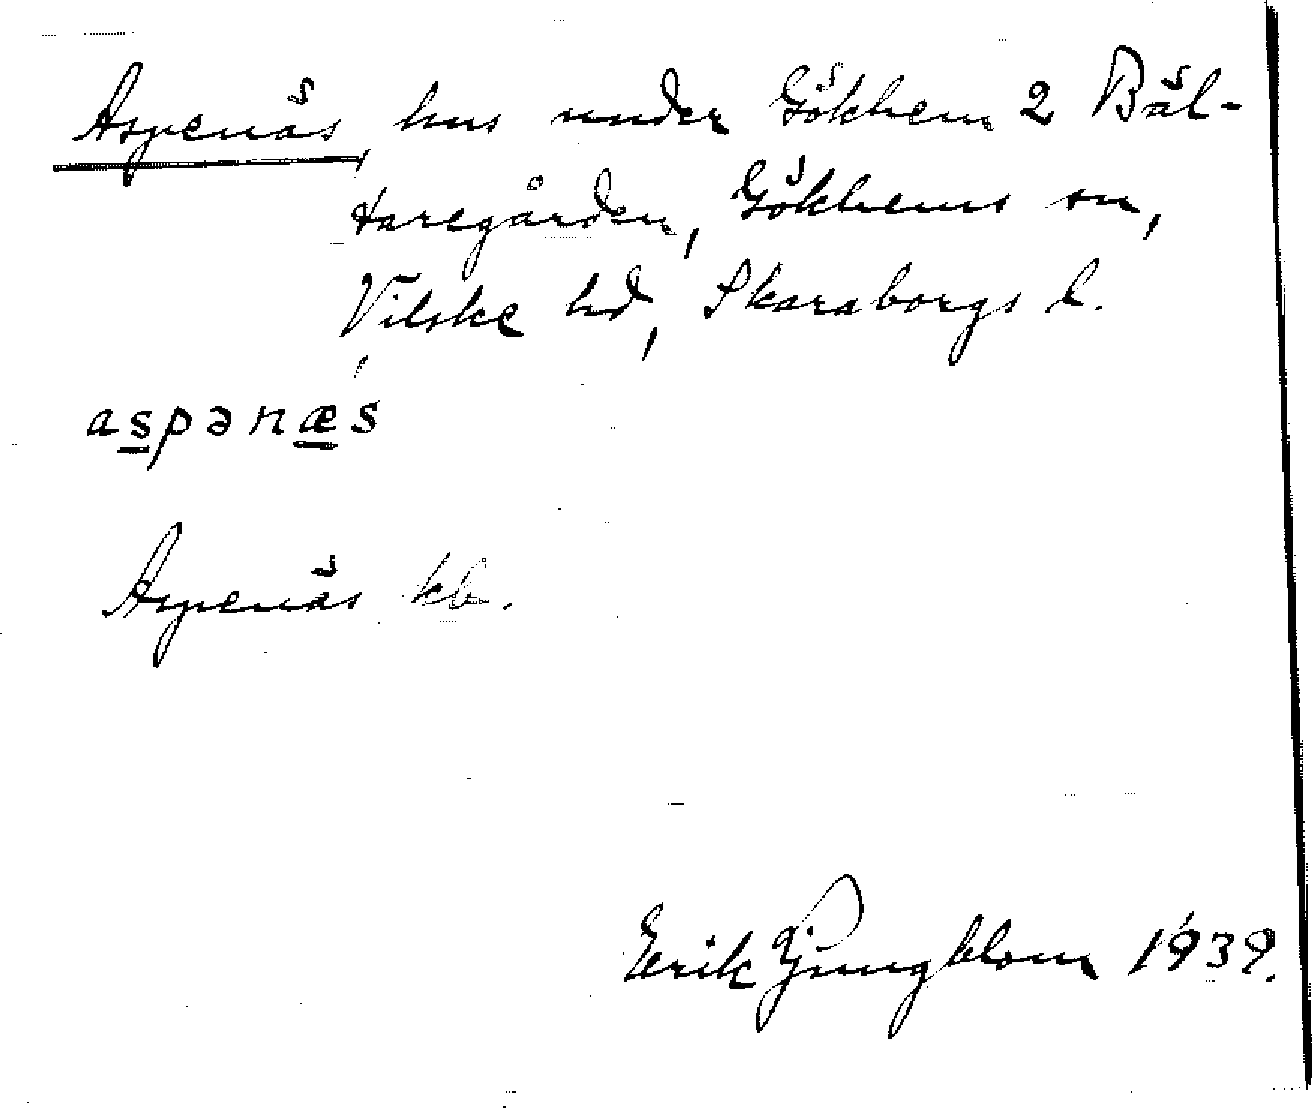 Aspenäs, hus under Gökhem 2 Bäl-
taregården, Gökhems sn,
Vilske hd, Skaraborgs l.
aspənæs
Aspenäs kb.
Erik Ljungblom 1939.